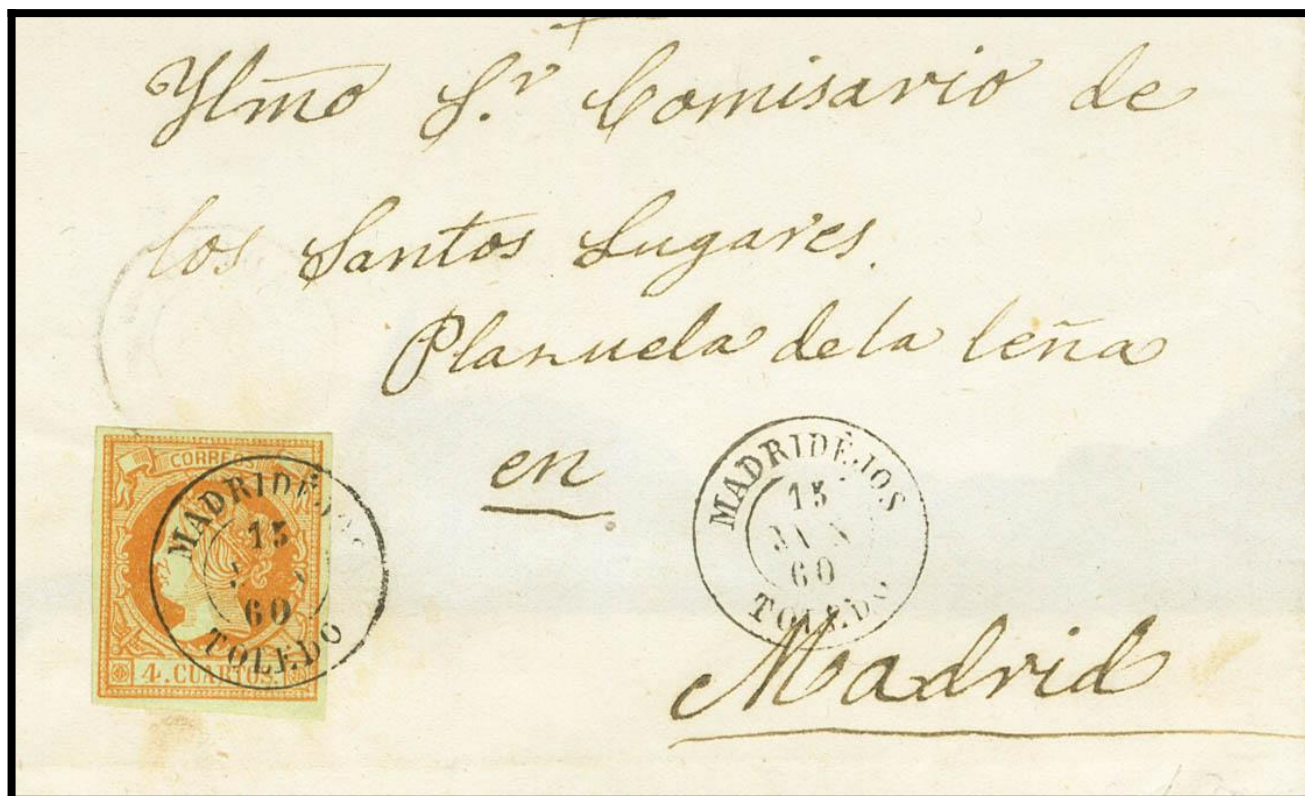 Ylmo S.r Comisario de
los Santos Lugares.
Planuela de la leña
en
Madrid
CORREOS
4. CUARTOS.
MADRIDEJOS
15
60
TOLEDO
MADRIDÉJOS
15
60
TOLEDO